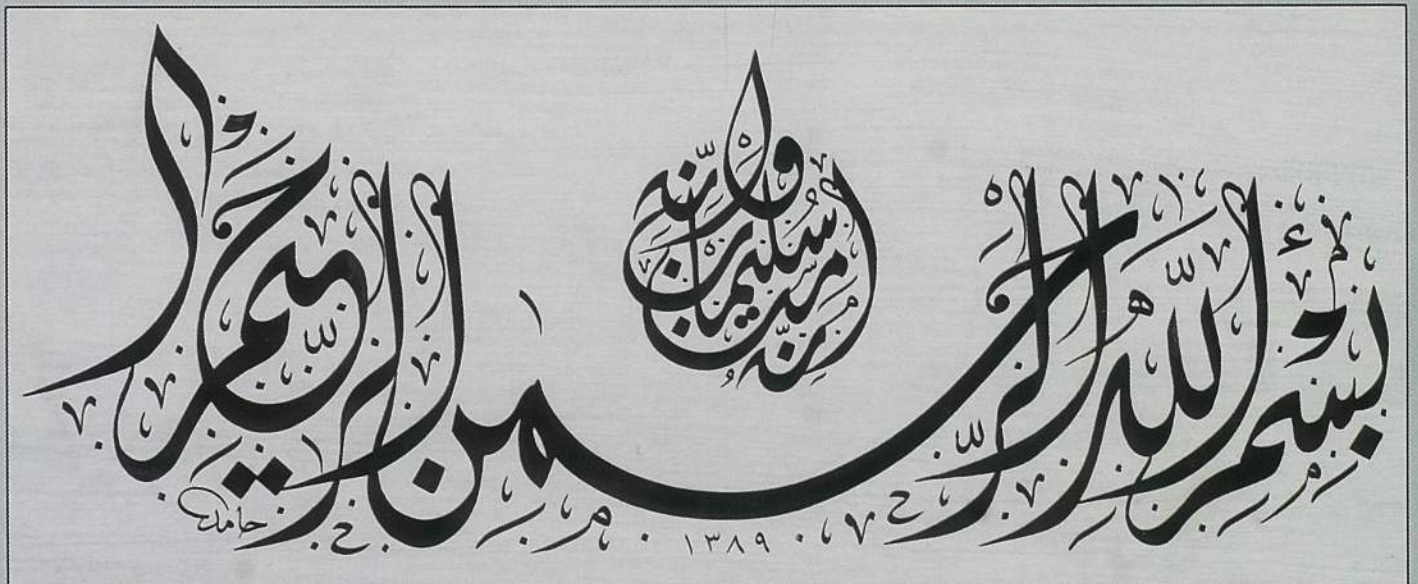 إِنَّهُ مِنْ سُلَيْمَانَ وَإِنَّهُ
بِسْمِ اللّٰهِ الرَّحْمٰنِ الرَّحِيمِ
حامد
١٣٨٩